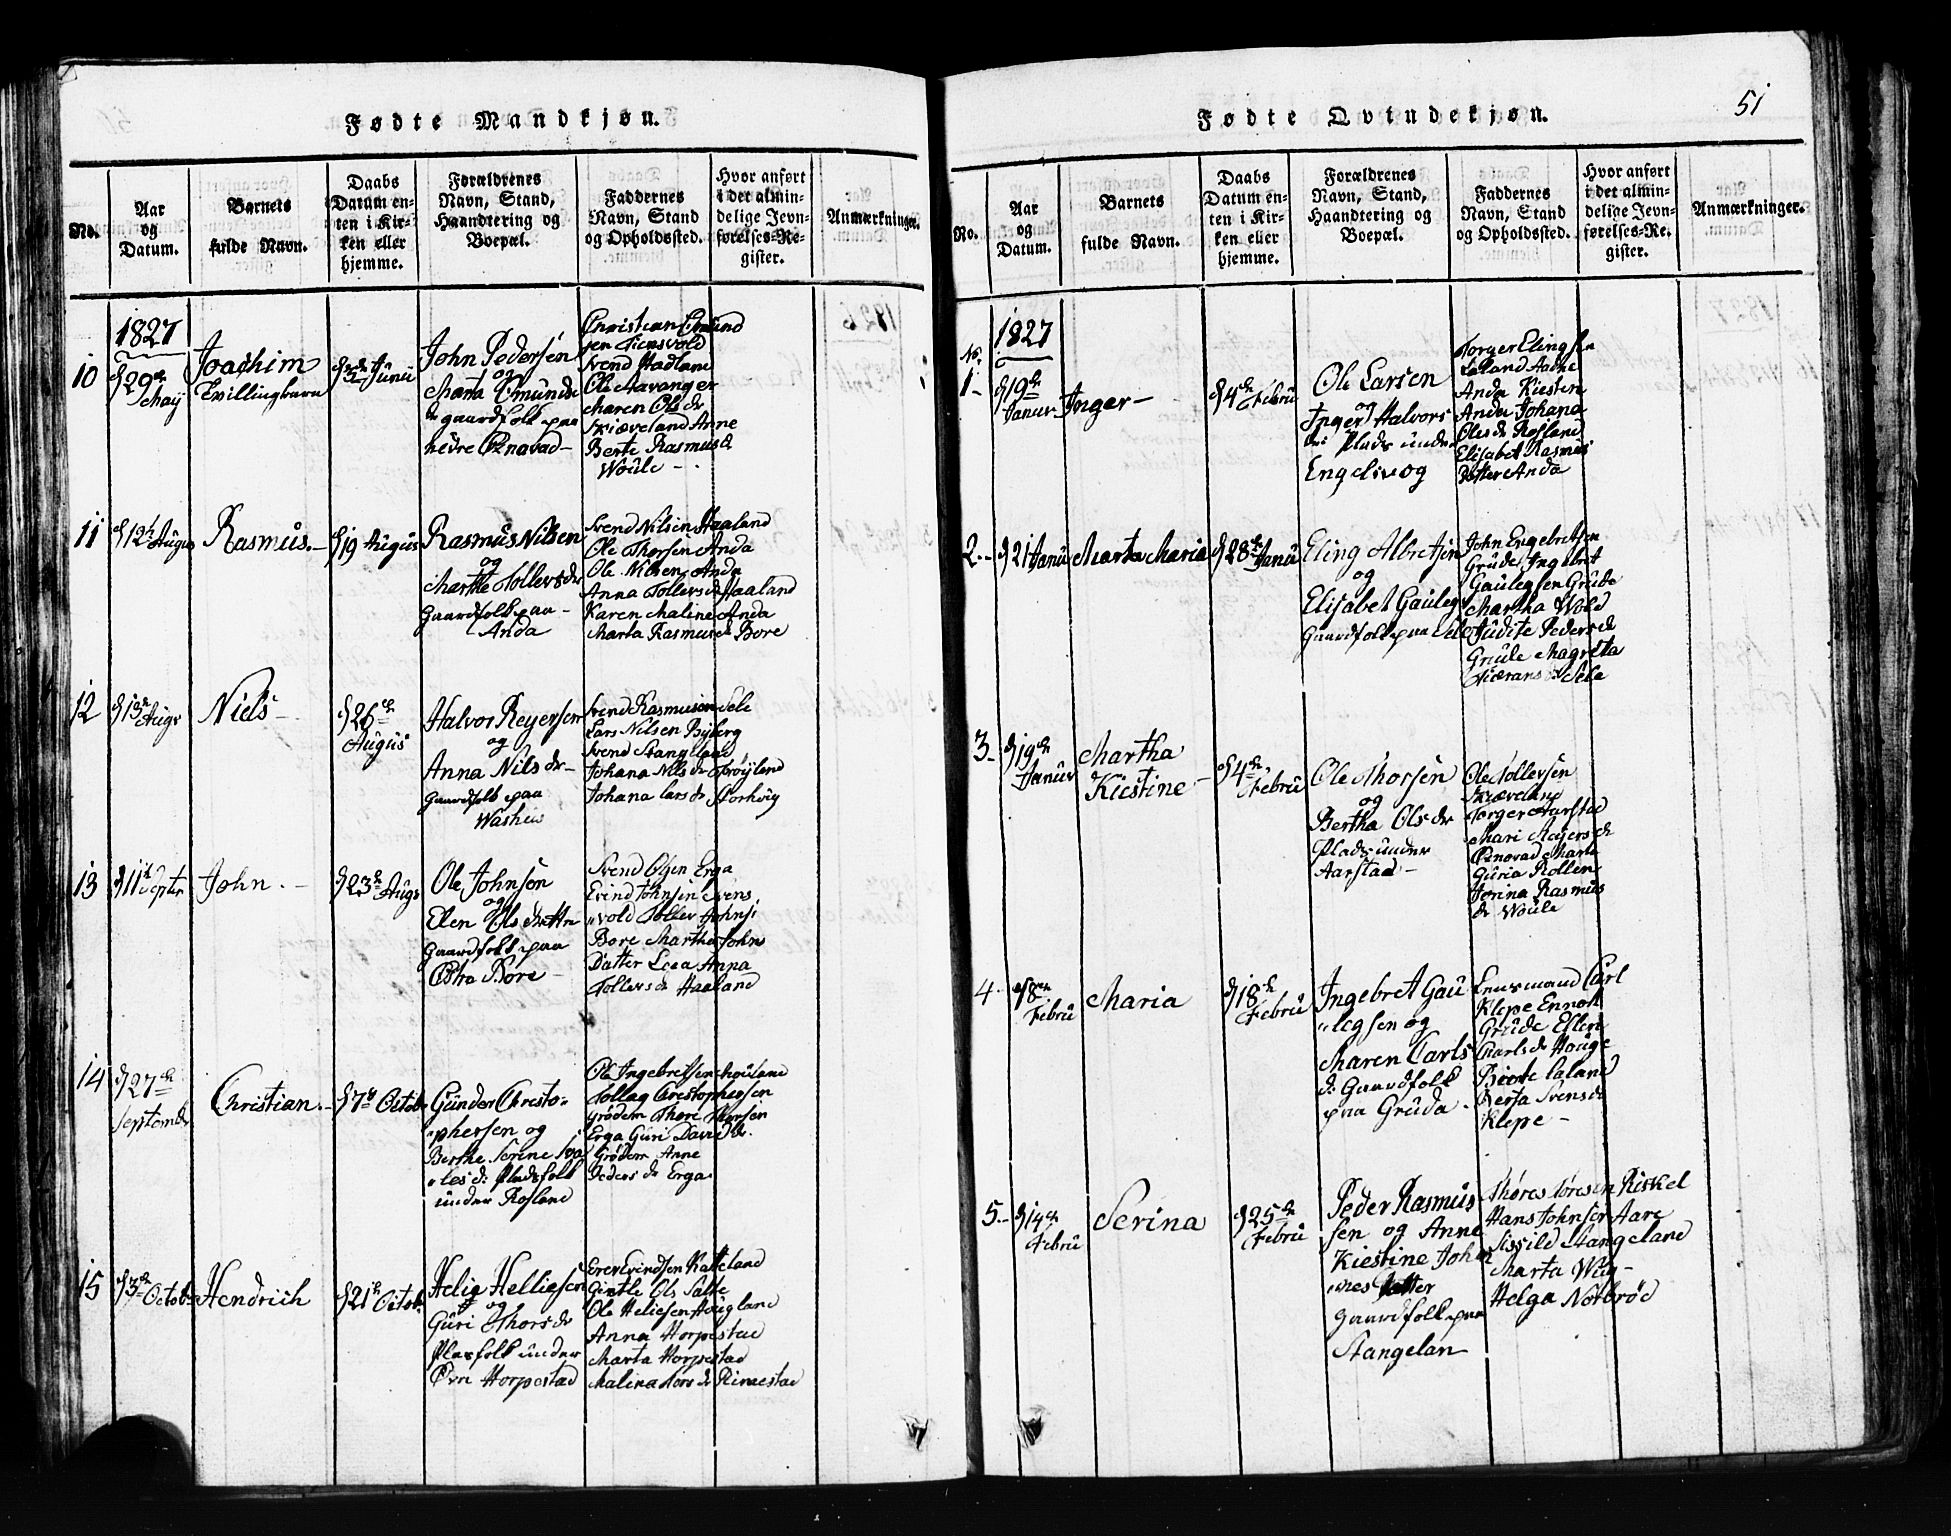 Fødte Mandkjøn.
No.
Aar
og
Datum.
Barnets
fulde Navn.
Daabs
Datum en-
ten i Kir-
ken eller
hjemme.
Forældrenes
Navn, Stand,
Haandtering og
Boepæl.
Faddernes
Navn, Stand
og Opholdssted.
Hvor anført
i det almin-
delige Jevn-
førelses-Re-
gister.
Anmærkninger.
1827
10
29
May
Joachim
Tvillingbarn
Junii
John Pedersen
og
Marta
gaardfolk paa
nedre Øxnavad
Christian
Svend
Ole Aavanger
Maren Ols dr
Skiæveland Anne
Berte Rasmus d
Woule
11
12 Augus
Rasmus
19 Augus
Rasmus Nilsen
og
Marthe Tollers dr
Gaardfolk paa
Anda
Svend Nilsen Haaland
Ole Thorsen Anda
Ole Nilsen Anda
Anna Tollers d Haaland
Karen Maline Anda
Marta Rasmus d Bore
12
13 Augs
Niels
26
Augus
Halvor Reyersen
og
Anna Nils dr
Gaardfolk paa
Svend Rasmusen Sele
Lars Nilsen Byberg
Svend Stangeland
Johana Nils dr Frøyland
Johana Lars dr Storhoug
13
11 Septr
John
23 Augs
Ole Johnsen
og
Elen Ols datter
Gaardfolk paa
Østra Bore
Svend Olsen Erga
Evind Johnsen Svens
vold Toller Johns
Bore Martha Johns
Datter Lea Anna
Tollers d Haaland
14
27
Septemb
Christian
7 Octob
Gunder Christo-
phersen og
Berthe Serine
Pladsfolk
under Rosland
Ole Ingebretsen
Tollag Christophersen
Grødem Thore Thorsen
Erga Guri David dr
Grødem Anne
Peders dr Erga
15
3 Octob
Hendrich
21 Octob
Helie Helliesen
og
Guri Thors dr
Plasfolk under
Horpestad
Evindsen
Giertle Ols Salte
Ole Heliesen Hougland
Anna Horpestad
Marta Horpestad
Malina Tors dr Rimestad
Fødte Qvindekjøn.
51
No.
Aar
og
Datum.
Barnets
fulde Navn.
Daabs
Datum en-
ten i Kir-
ken eller
hjemme.
Forældrenes
Navn, Stand,
Haandtering og
Boepæl.
Faddernes
Navn, Stand
og Opholdssted.
Hvor anført
i det almin-
delige Jevn-
førelses-Re-
gister.
Anmærkninger.
1827
No
1
19
Janur
Inger
4 Febru
Ole Larsen
og
Inger Halvors
Plads under
Engelsvog
Torger Eling
Laland
Anda Kiesten
Anda Johana
Ols dr Rosland
Elisabet Rasmus
Datter Anda
2
21 Janu
Marta Maria
28 Janu
Eling Albretsen
og
Elisabet Gauleg
Gaardfolk paa Sele
John Engebretsen
Grude Ingebret
Gaulegsen Grude
Martha Wold
Judite Peders d
Grude Magreta
Sele
3
19
Januer
Martha
Kiestine
4
Febru
Ole Thorsen
og
Bertha Ols dr
Plads under
Aarstad
Ole Tollersen
Skiæveland
Torger Aarstad
Mari
Øxnavad Marta
Guria Rollen
Jorina Rasmus
dr Woule
4
8
Febru
Maria
18
Febru
Ingebret Gau
legsen og
Maren Carls
d: Gaardfolk
paa Gruda
Lensmand Carl
Klepe Ennok
Grude Ellen
Carls dr Houge
Laland
Svens d
Klepe
5
14
Febru
Serina
25
Febru
Peder Rasmus
sen og Anne
Kiestine Johan
nes Datter
gaardfolk paa
Stangelan
Thøres Toresen Riskel
Hans Johnsen Aare
Sissild Stangeland
Marta
Helga Norbrød